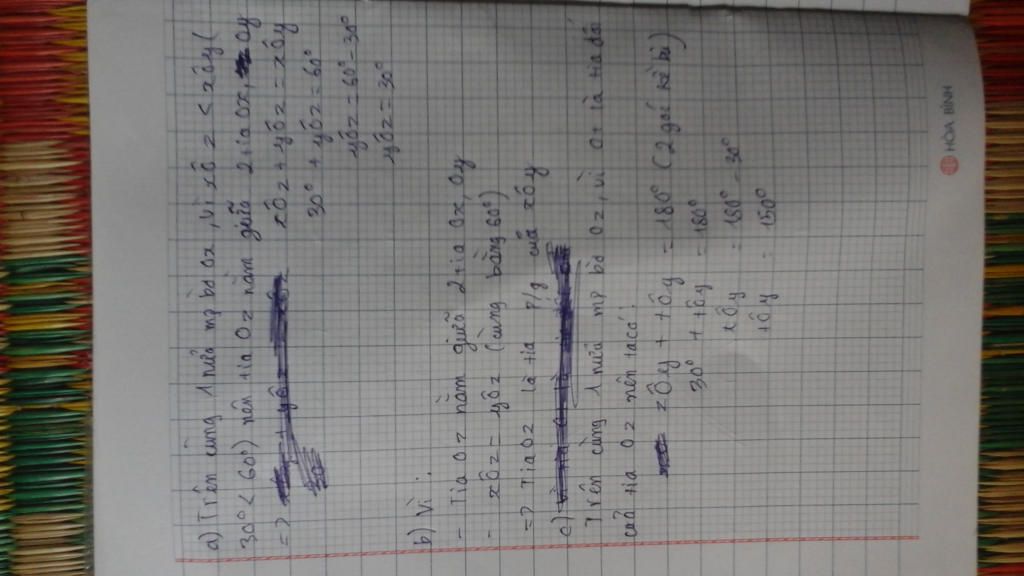 a) Trên cùng 1 nửa mp bờ Ox, vì xÔz < xÔy (
30° < 60°) nên tia Oz nằm giữa 2 tia Ox, Oy
=> xÔz + yÔz = xÔy
30° + yÔz = 60°
yÔz = 60° - 30°
yÔz = 30°
b) Vì :
- Tia Oz nằm giữa 2 tia Ox, Oy
- xÔz = yÔz (cùng bằng 60°)
=> Tia Oz là tia p/g của xÔy
c)
Trên cùng 1 nửa mp bờ Oz, vì Ot là tia đối
của tia Oz nên ta có :
zÔy + tÔy = 180° (2 góc kề bù)
30° + tÔy = 180°
tÔy = 180° - 30°
tÔy = 150°
HÒA BÌNH